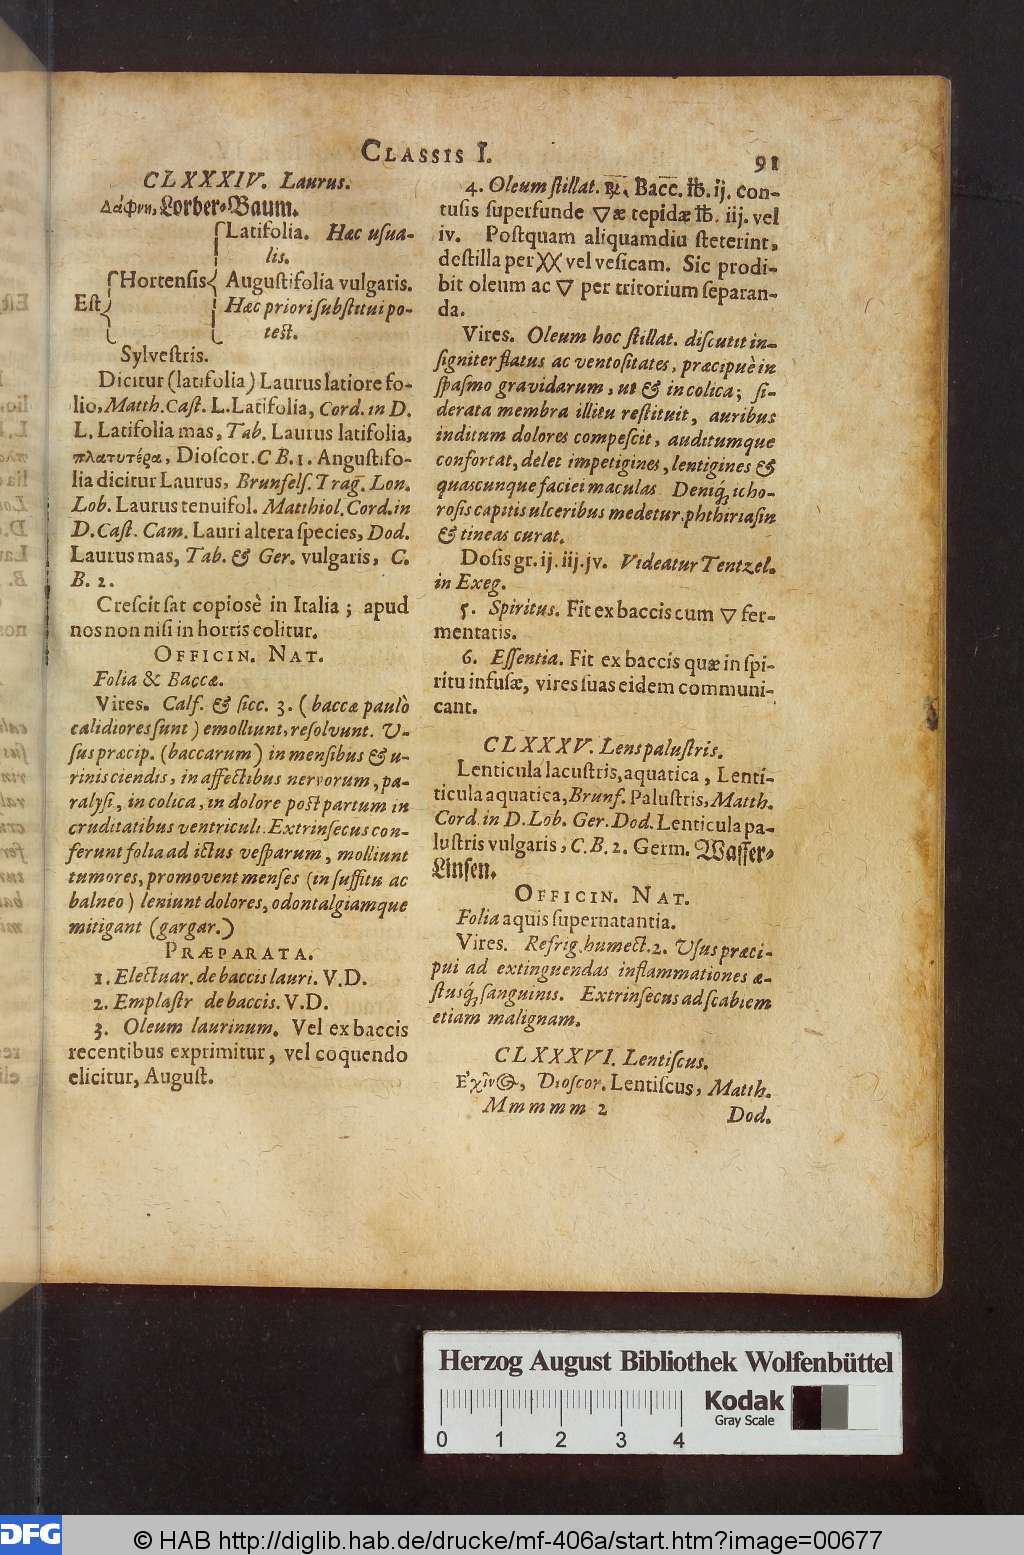 CLASSIS I.
91
CLXXXIV. Laurus.
Δάφνη, Lorber-Baum.
Latifolia. Hæc usua-
lis.
Hortensis
Augustifolia vulgaris.
Est
Hæc priori substitui po-
test.
Sylvestris.
Dicitur (latifolia) Laurus latiore fo-
lio, Matth. Cast. L. Latifolia, Cord. in D.
L. Latifolia mas, Tab. Laurus latifolia,
πλατυτέρα, Dioscor. C B. 1. Angustifo-
lia dicitur Laurus, Brunfels. Trag. Lon.
Lob. Laurus tenuifol. Matthiol. Cord. in
D. Cast. Cam. Lauri altera species, Dod.
Laurus mas, Tab. & Ger. vulgaris, C.
B. 2.
Crescit sat copiosè in Italia; apud
nos non nisi in hortis colitur.
OFFICIN. NAT.
Folia & Baccæ.
Vires. Calf. & sicc. 3. (baccæ paulò
calidiores sunt) emolliunt, resolvunt. U-
sus præcip. (baccarum) in mensibus & u-
rinis ciendis, in affectibus nervorum, pa-
ralysi, in colica, in dolore post partum in
cruditatibus ventriculi. Extrinsecus con-
ferunt folia ad ictus vesparum, molliunt
tumores, promovent menses (in suffitu ac
balneo) leniunt dolores, odontalgiamque
mitigant (gargar.)
PRÆPARATA.
1. Electuar. de baccis lauri. V. D.
2. Emplastr de baccis. V. D.
3. Oleum laurinum. Vel ex baccis
recentibus exprimitur, vel coquendo
elicitur, August.
4. Oleum stillat. ℞. Bacc. ℔. ij. con-
tusis superfunde ▽æ tepidæ ℔. iij. vel
iv. Postquam aliquamdiu steterint,
destilla per XX vel vesicam. Sic prodi-
bit oleum ac ▽ per tritorium separan-
da.
Vires. Oleum hoc stillat. discutit in-
signiter flatus ac ventositates, præcipuè in
spasmo gravidarum, ut & in colica; si-
derata membra illitu restituit, auribus
inditum dolores compescit, auditumque
confortat, delet impetigines, lentigines &
quascunque faciei maculas Deniq; icho-
rosis capitis ulceribus medetur, phthiriasin
& tineas curat.
Dosis gr. ij. iij. jv. Videatur Tentzel.
in Exeg.
5. Spiritus. Fit ex baccis cum ▽ fer-
mentatis.
6. Essentia. Fit ex baccis quæ in spi-
ritu infusæ, vires suas eidem communi-
cant.
CLXXXV. Lens palustris.
Lenticula lacustris, aquatica, Lenti-
ticula aquatica, Brunf. Palustris, Matth.
Cord. in D. Lob. Ger. Dod. Lenticula pa-
lustris vulgaris, C. B. 2. Germ. Wasser-
Linsen.
OFFICIN. NAT.
Folia aquis supernatantia.
Vires. Refrig. humect. 2. Usus præci-
pui ad extinguendas inflammationes æ-
stusq; sanguinis. Extrinsecus ad scabiem
etiam malignam.
CLXXXVI. Lentiscus.
Ἐχῖνος, Dioscor. Lentiscus, Matth.
Mmmmm 2
Dod.
Herzog August Bibliothek Wolfenbüttel
Kodak
Gray Scale
0 1 2 3 4
DFG
© HAB http://diglib.hab.de/drucke/mf-406a/start.htm?image=00677